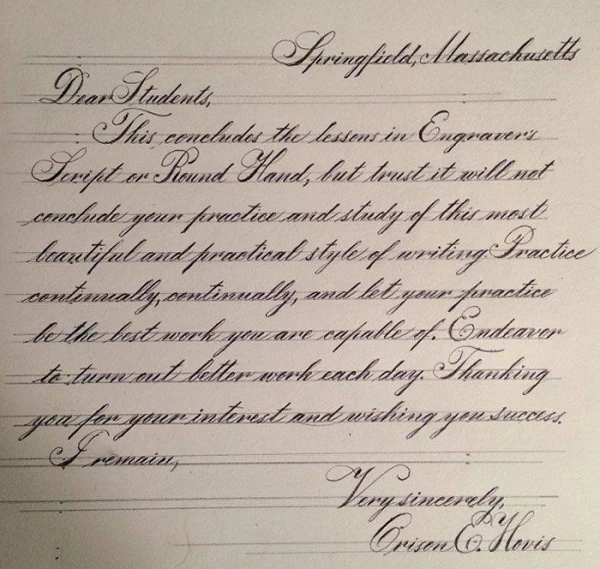 Springfield, Massachusetts
Dear Students,
This concludes the lessons in Engraver's
Script or Round Hand, but trust it will not
conclude your practice and study of this most
beautiful and practical style of writing. Practice
continually, continually, and let your practice
be the best work you are capable of. Endeaver
to turn out better work each day. Thanking
you for your interest and wishing you success.
I remain,
Very sincerely,
Orison E. Hovis